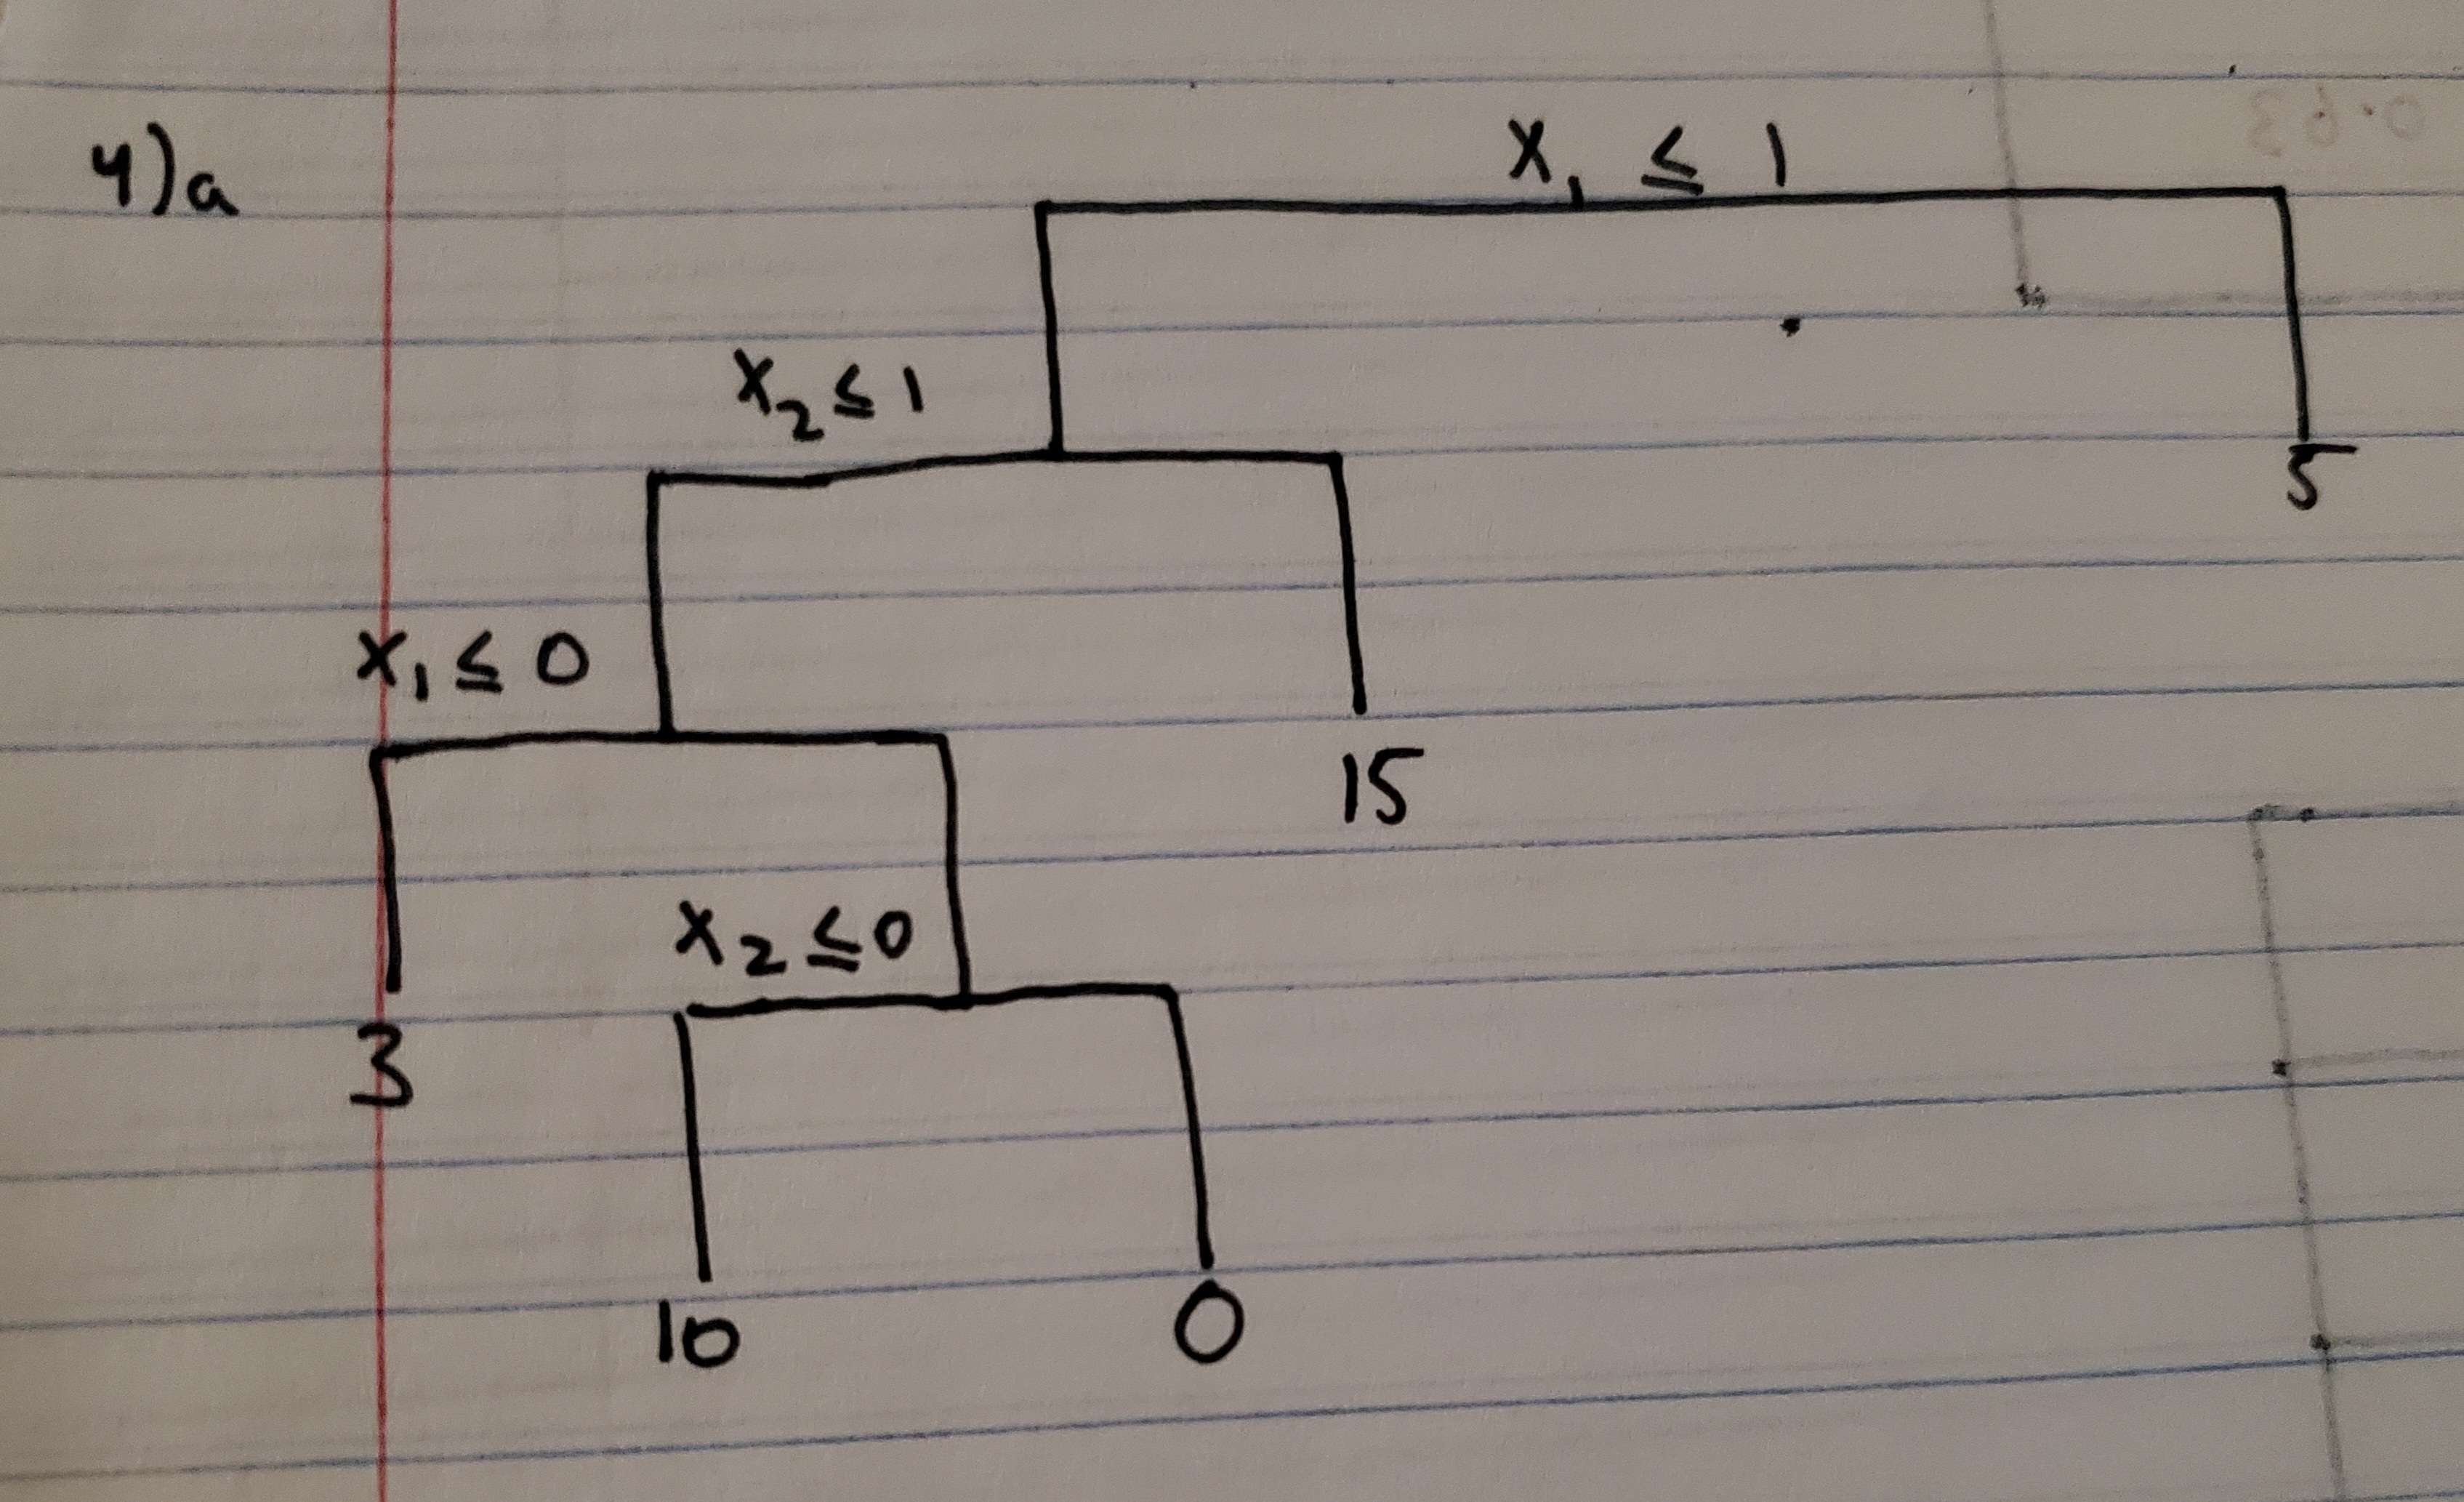 4)a
X₁ ≤ 1
X₂ ≤ 1
5
X₁ ≤ 0
15
X₂ ≤ 0
3
10
0
0.63